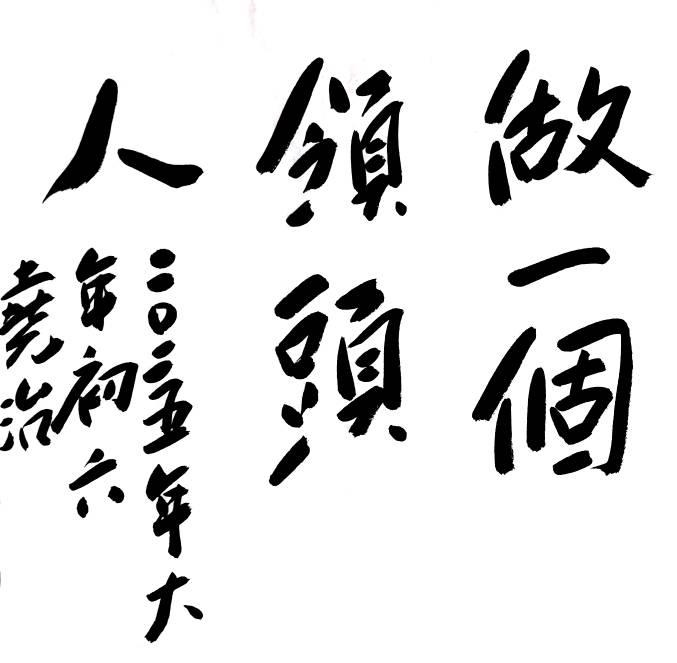 做一個
領頭
人
二〇二五年大
年初六
堯治